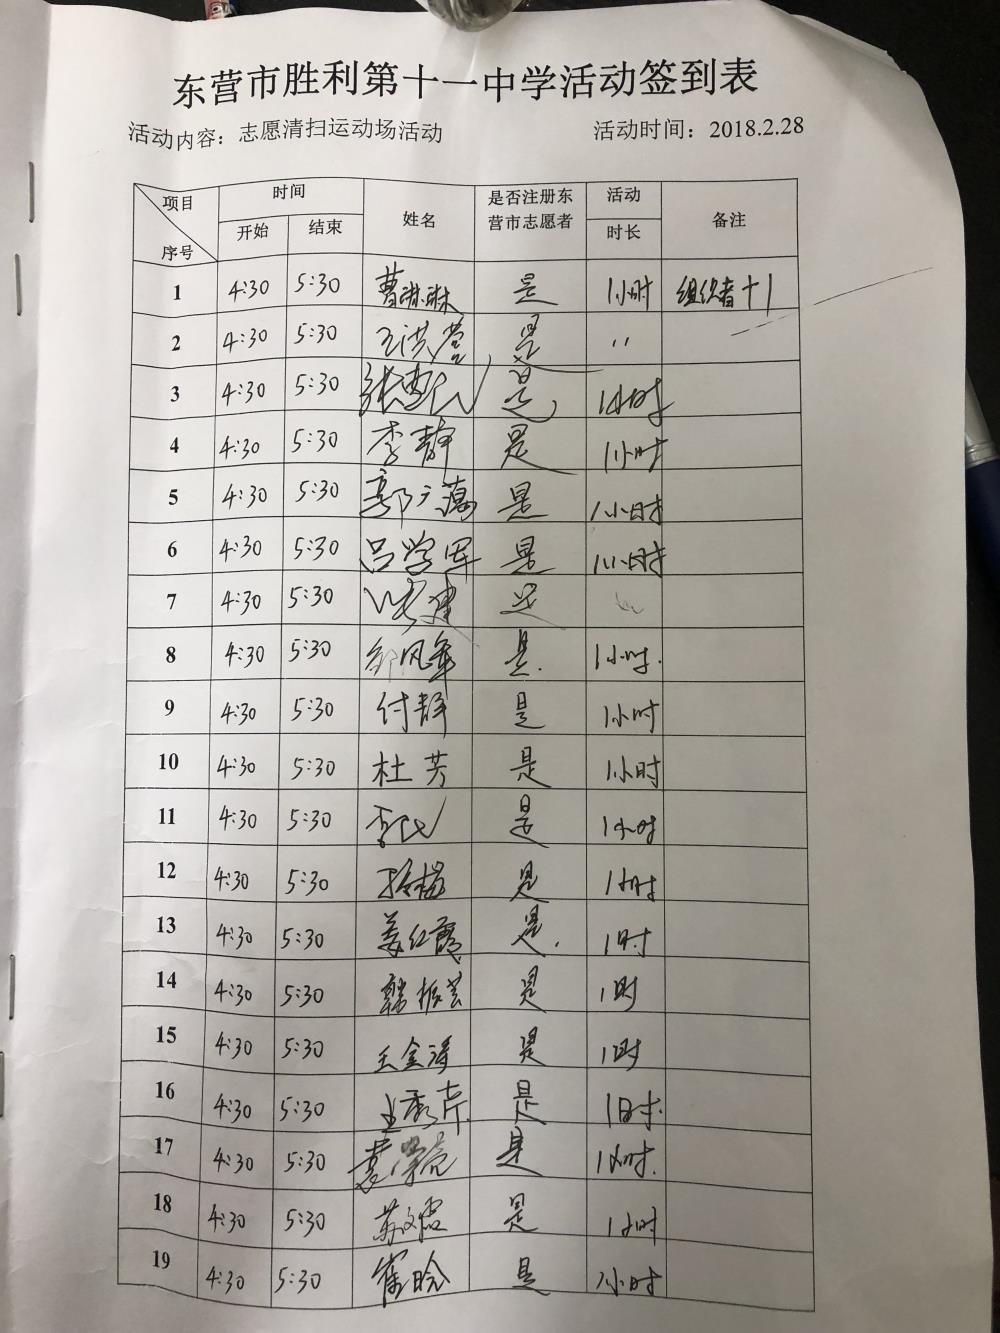 东营市胜利第十一中学活动签到表
活动内容：志愿清扫运动场活动 活动时间：2018.2.28
项目 时间 姓名 是否注册东 活动 备注
序号 开始 结束 营市志愿者 时长
1 4:30 5:30 曹琳琳 是 1小时 组织者十1
2 4:30 5:30 王洪营 是 〃
3 4:30 5:30 是 1小时
4 4:30 5:30 李静 是 1小时
5 4:30 5:30 是 1小时
6 4:30 5:30 吕学军 是 1小时
7 4:30 5:30 是
8 4:30 5:30 是. 1小时.
9 4:30 5:30 付静 是 1小时
10 4:30 5:30 杜芳 是 1小时
11 4:30 5:30 是 1小时
12 4:30 5:30 是 1小时
13 4:30 5:30 姜红霞 是. 1时
14 4:30 5:30 韩振芸 是 1时
15 4:30 5:30 王金涛 是 1时
16 4:30 5:30 王秀芹 是 1时.
17 4:30 5:30 是 1小时.
18 4:30 5:30 是 1小时
19 4:30 5:30 崔晗 是 1小时